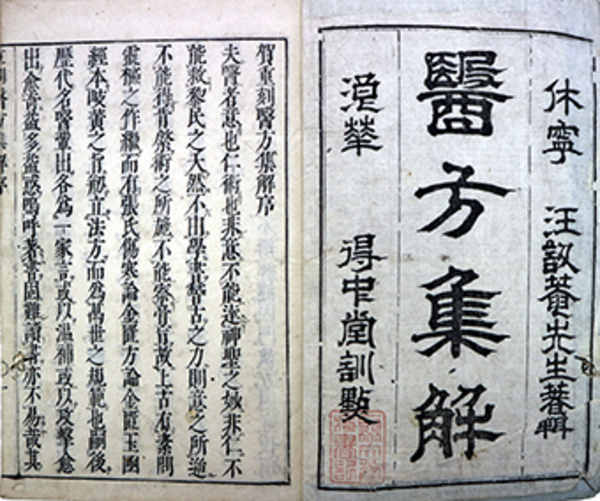 休寧 汪訒菴先生纂輯
醫方集解
浪華 得中堂訓點
賀重刻醫方集解序
夫醫者意也仁術也非意不能達神聖之妙非仁不
能救黎民之夭然不由學稽古之力則意之所適
不能得肯綮術之所施不能察膏肓故上古有素問
靈樞之作繼而有張氏傷寒論金匱方論金匱玉函
經本岐黃之旨立法方而為萬世之規範也嗣後
歷代名醫輩出各為一家言或以溫補或以攻擊愈
出愈奇益多益惑嗚呼著書固難讀書亦不易哉其